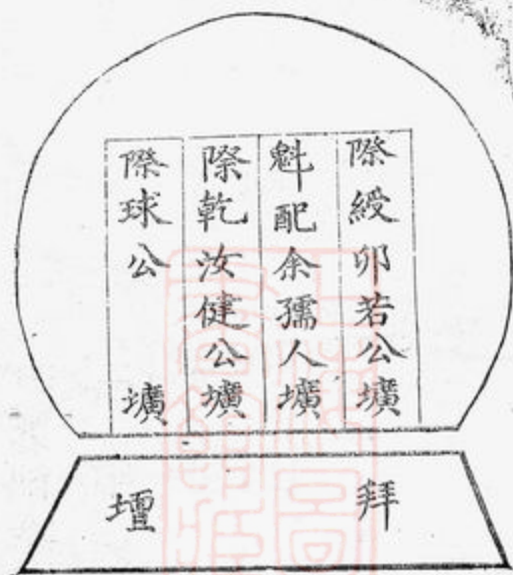 際綬卯若公壙
魁配余孺人壙
際乾汝健公壙
際球公 壙
拜壇